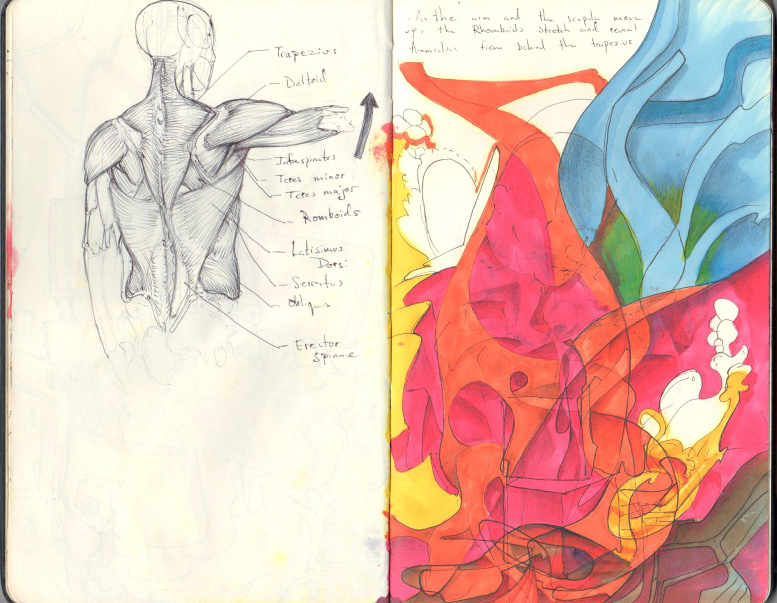 Trapezius
Deltoid
Infraspinatus
Teres minor
Teres major
Romboids
Latisimus
Dorsi
Serratus
Obliqus
Erector
spinne
- As the arm and the scapula move
up, the Rhomboids stretch and reveal
themselves from behind the trapezius